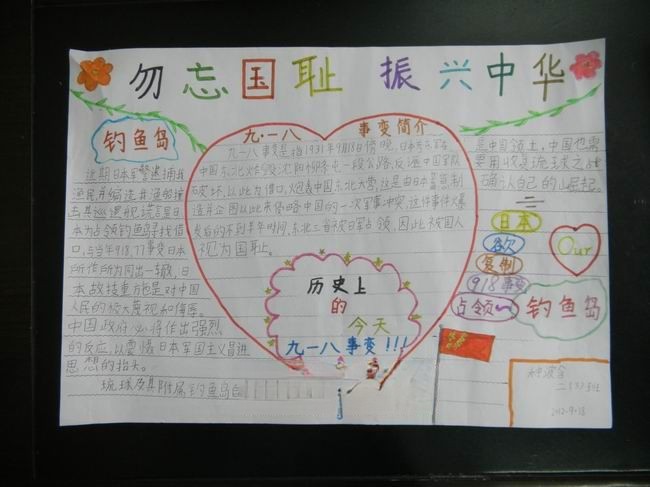 勿忘国耻 振兴中华
钓鱼岛
近期日本军警逮捕我
渔民并编造并渔船撞
击其巡逻艇谎言是日
本为占领钓鱼岛寻找借
口,与当年918,77事变日本
所作所为同出一辙,日
本故技重施是对中国
人民的极大蔑视和侮辱。
中国政府必将作出强烈
的反应,以震慑日本军国主义冒进
思想的抬头。
琉球及其附属钓鱼岛自
九·一八 事变简介
九一八事变是指1931年9月18日傍晚,日本关东军在
中国东北炸毁沈阳柳条屯一段公路,反诬中国军队
破坏,以此为借口,炮轰中国东北大营,这是由日本蓄意制
造并企图以此来侵略中国的一次军事冲突,这件事件爆
发后的不到半年时间,东北三省被日军占领,因此被国人
视为国耻。
历史上
的
今天
九一八事变!!!
是中国领土,中国也需
要用收复琉球之战
确认自己的崛起。
日本
欲
复制
918事变
占领
Our
钓鱼岛
2012.9.18